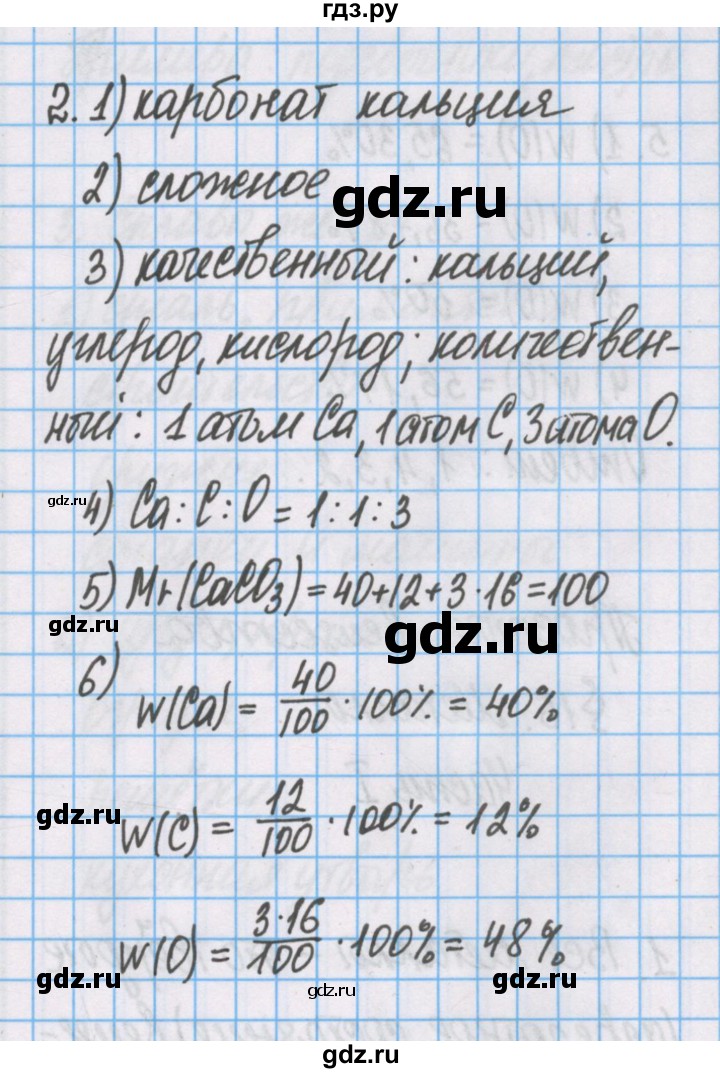 гдз.ру
2. 1) карбонат кальция
2) сложное
gdz.ru
3) качественный: кальций,
углерод, кислород; количествен-
ный: 1 атом Ca, 1 атом C, 3 атома O.
gdz.ru
4) Ca : C : O = 1 : 1 : 3
5) Mr(CaCO₃) = 40+12+3·16=100
gdz.ru
gdz.ru
6) W(Ca) = 40/100 · 100% = 40%
gdz.ru
W(C) = 12/100 · 100% = 12%
gdz.ru
W(O) = 3·16/100 · 100% = 48%
gdz.ru
gdz.ru
gdz.ru
gdz.ru